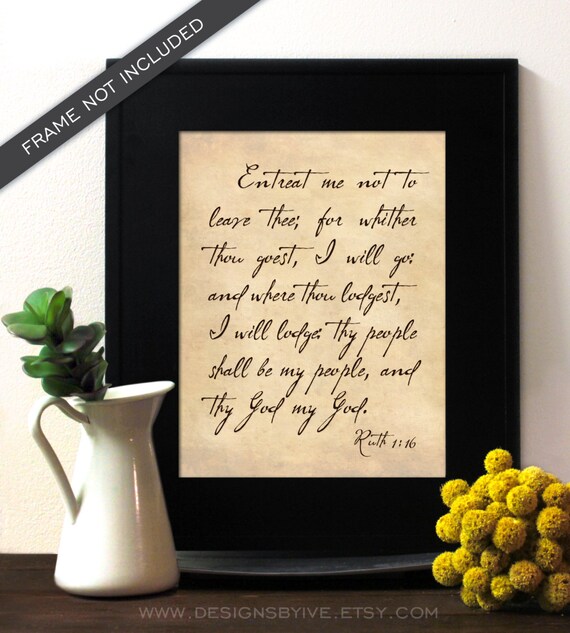 FRAME NOT INCLUDED
Entreat me not to
leave thee; for whither
thou goest, I will go:
and where thou lodgest,
I will lodge: thy people
shall be my people, and
thy God my God.
Ruth 1:16
WWW.DESIGNSBYIVE.ETSY.COM